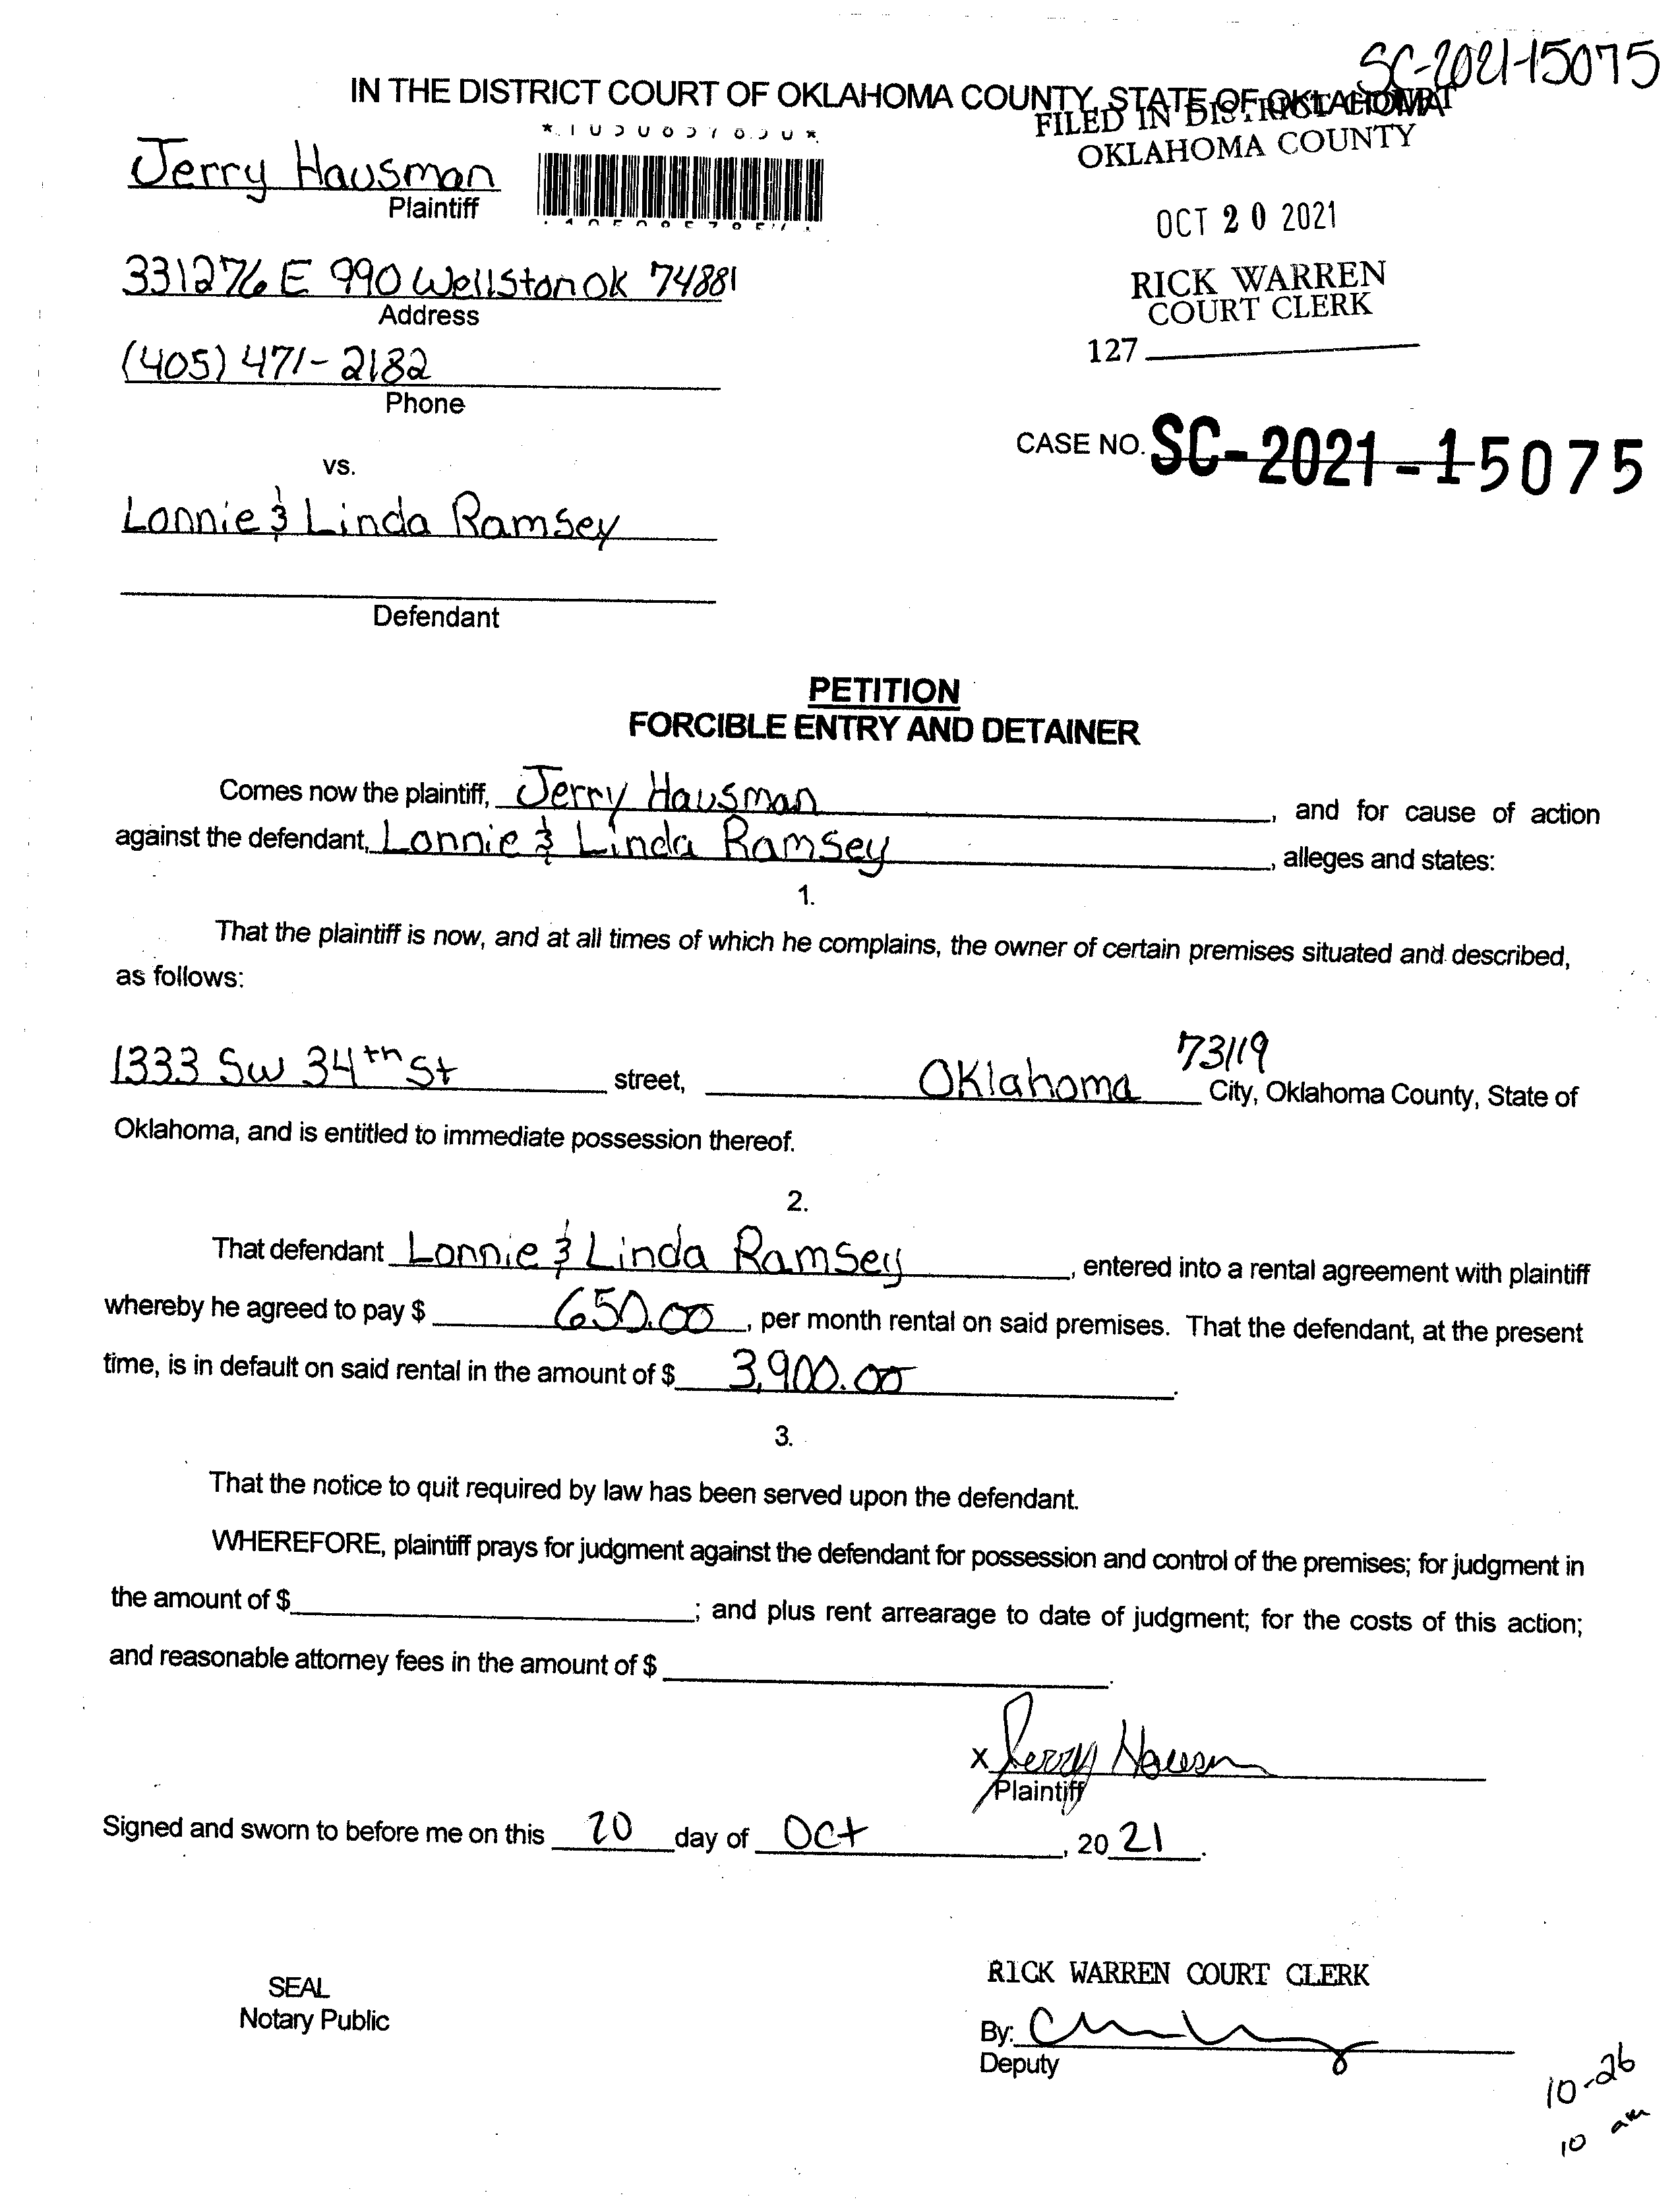 SC-2021-15075
IN THE DISTRICT COURT OF OKLAHOMA COUNTY, STATE OF OKLAHOMA
FILED IN DISTRICT COURT
OKLAHOMA COUNTY
Jerry Hausman
Plaintiff
OCT 20 2021
331276 E 990 Wellston OK 74881
Address
RICK WARREN
COURT CLERK
(405) 471-2182
Phone
127
CASE NO. SC-2021-15075
vs.
Lonnie & Linda Ramsey
Defendant
PETITION
FORCIBLE ENTRY AND DETAINER
Comes now the plaintiff, Jerry Hausman, and for cause of action
against the defendant, Lonnie & Linda Ramsey, alleges and states:
1.
That the plaintiff is now, and at all times of which he complains, the owner of certain premises situated and described,
as follows:
73119
1333 SW 34th St street, Oklahoma City, Oklahoma County, State of
Oklahoma, and is entitled to immediate possession thereof.
2.
That defendant Lonnie & Linda Ramsey, entered into a rental agreement with plaintiff
whereby he agreed to pay $ 650.00, per month rental on said premises. That the defendant, at the present
time, is in default on said rental in the amount of $ 3,900.00.
3.
That the notice to quit required by law has been served upon the defendant.
WHEREFORE, plaintiff prays for judgment against the defendant for possession and control of the premises; for judgment in
the amount of $ ; and plus rent arrearage to date of judgment; for the costs of this action;
and reasonable attorney fees in the amount of $ .
x Jerry Hausman
Plaintiff
Signed and sworn to before me on this 20 day of Oct, 2021.
SEAL
Notary Public
RICK WARREN COURT CLERK
By:
Deputy
10-26
10 am